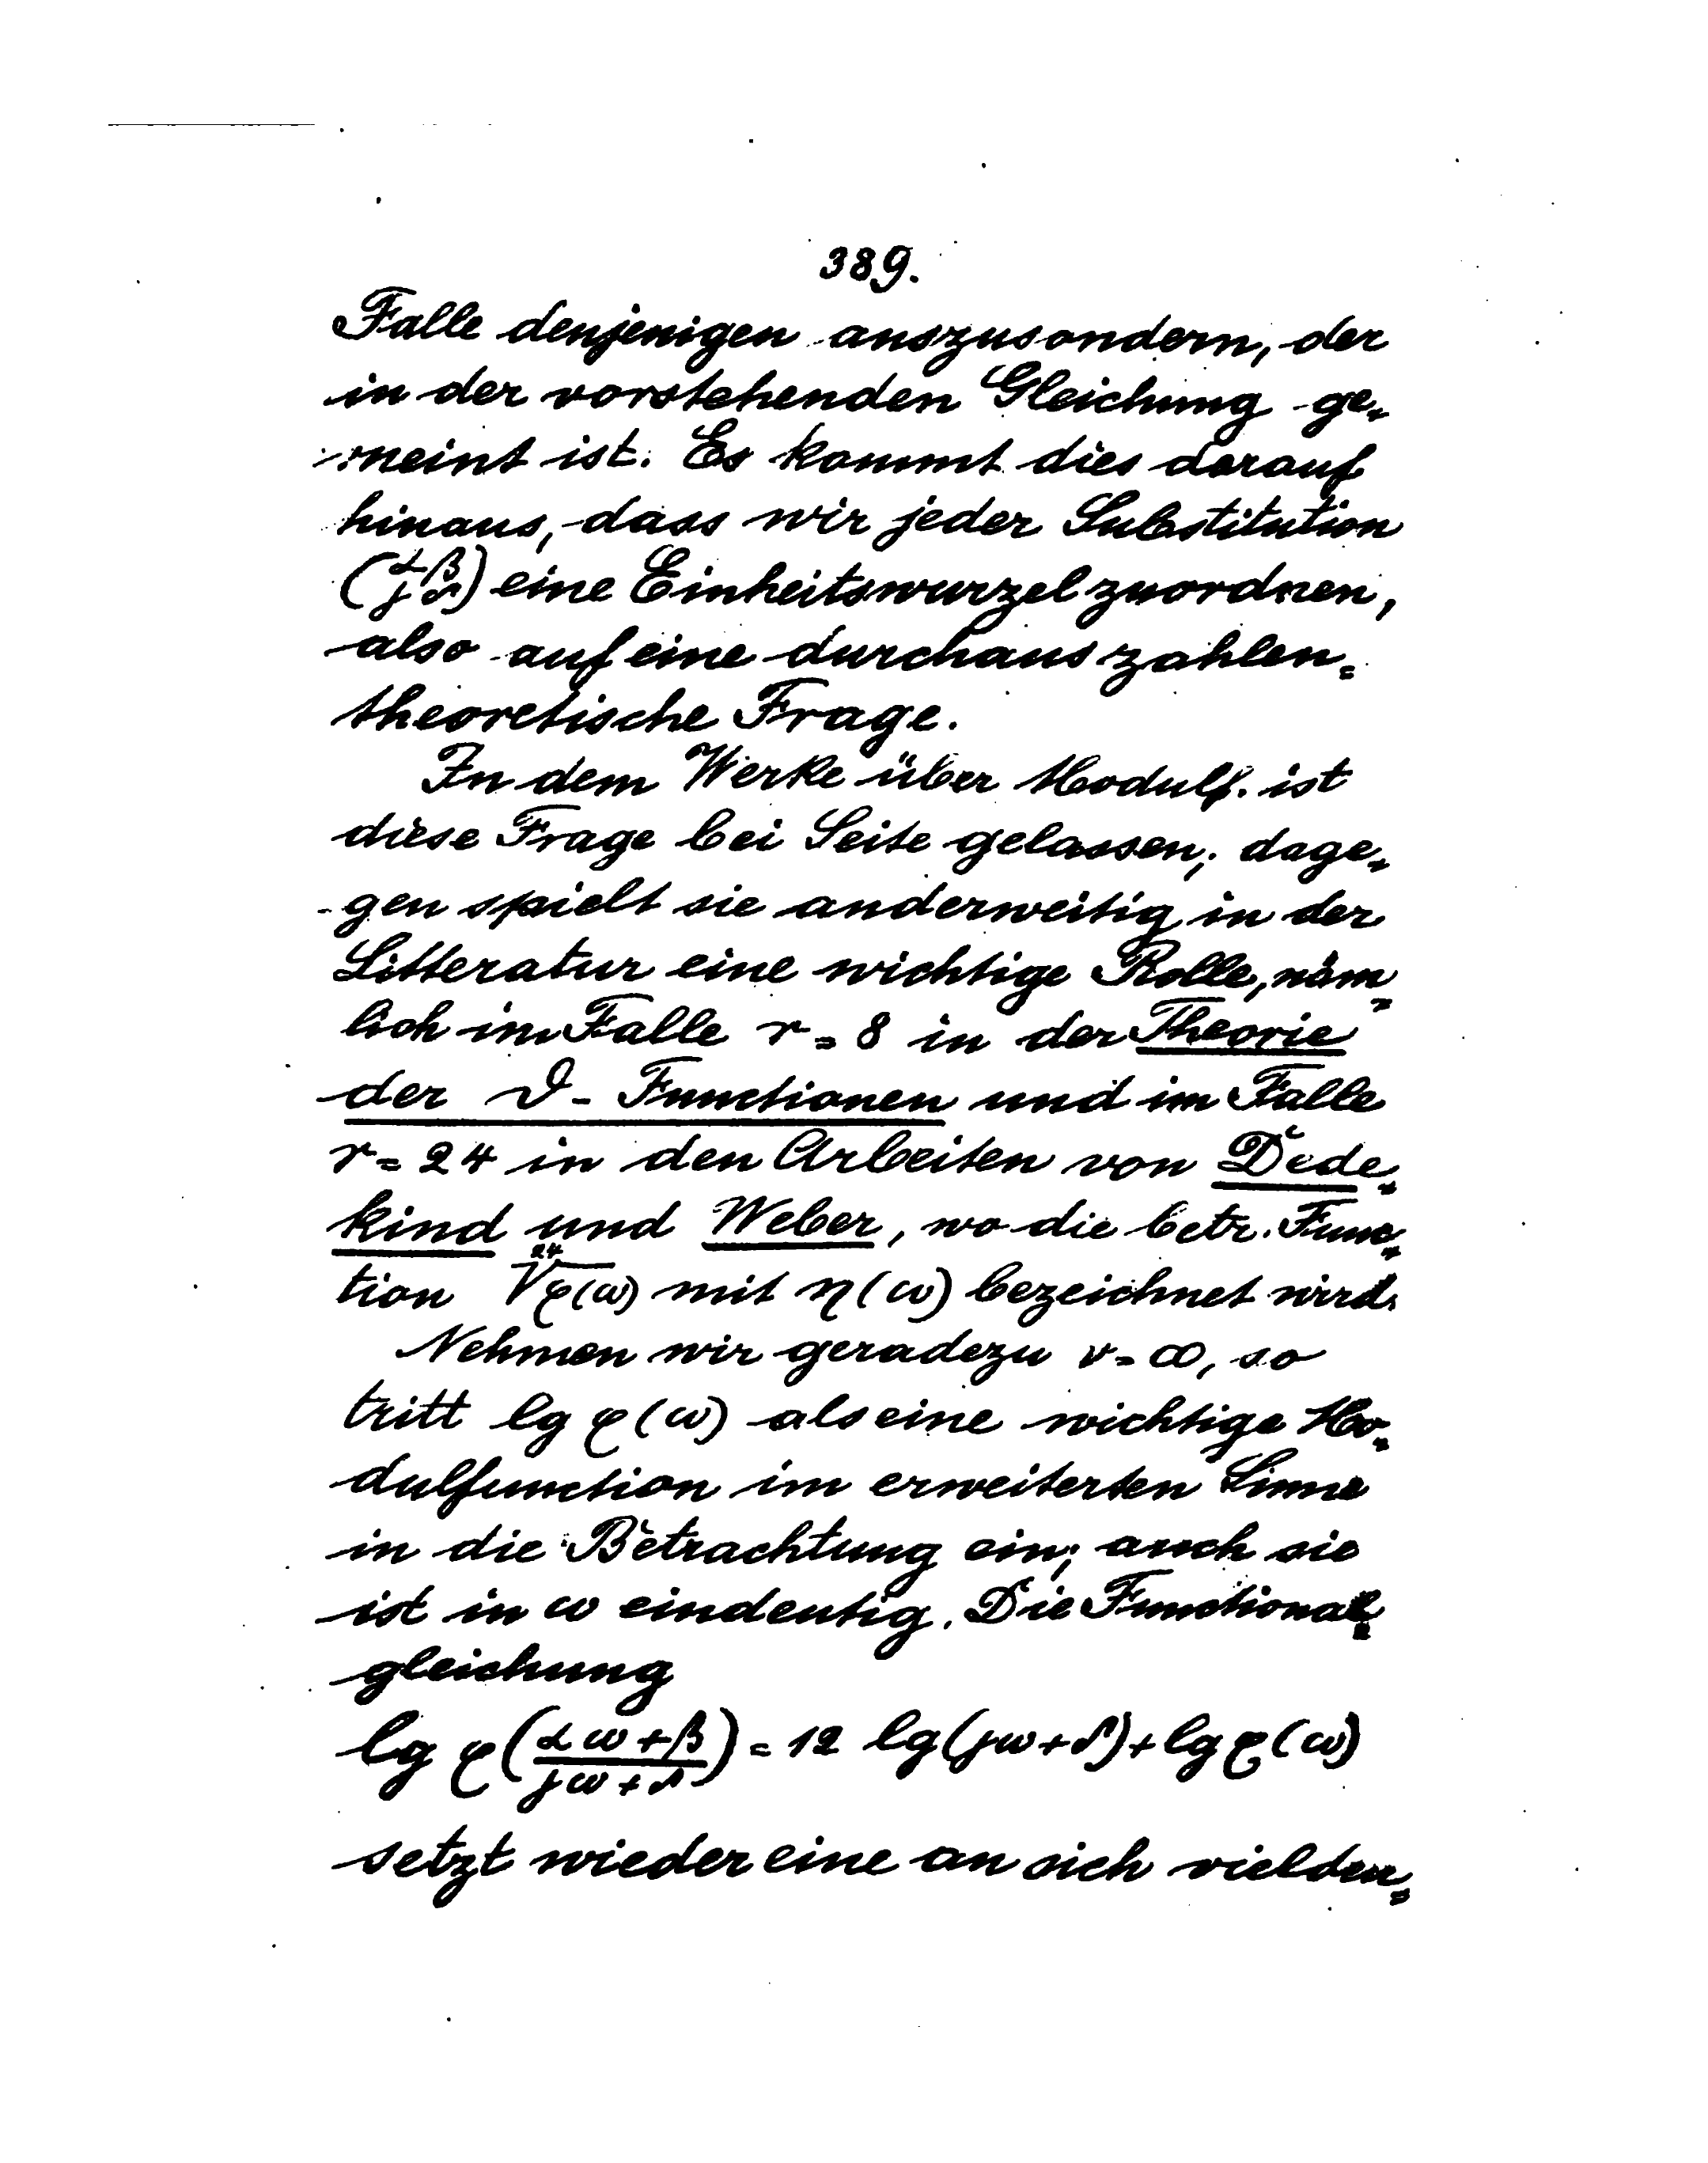 389.
Falle denjenigen auszusondern, der
in der vorstehenden Gleichung ge=
meint ist. Es kommt dies darauf
hinaus, dass wir jeder Substitution
(α β / γ δ) eine Einheitswurzel zuordnen,
also auf eine durchaus zahlen=
theoretische Frage.
In dem Werke über Modulf. ist
diese Frage bei Seite gelassen; dage=
gen spielt sie anderweitig in der
Litteratur eine wichtige Rolle, näm=
lich im Falle r = 8 in der Theorie
der ϑ - Functionen und im Falle
r = 24 in den Arbeiten von Dede=
kind und Weber, wo die betr. Func=
tion ²⁴√φ(ω) mit η(ω) bezeichnet wird.
Nehmen wir geradezu r = ∞, so
tritt lg φ(ω) als eine wichtige Mo=
dulfunction im erweiterten Sinne
in die Betrachtung ein; auch sie
ist in ω eindeutig. Die Functional=
gleichung
lg φ((αω+β)/(γω+δ)) = 12 lg(γω+δ) + lg φ(ω)
setzt wieder eine an sich vieldeu=